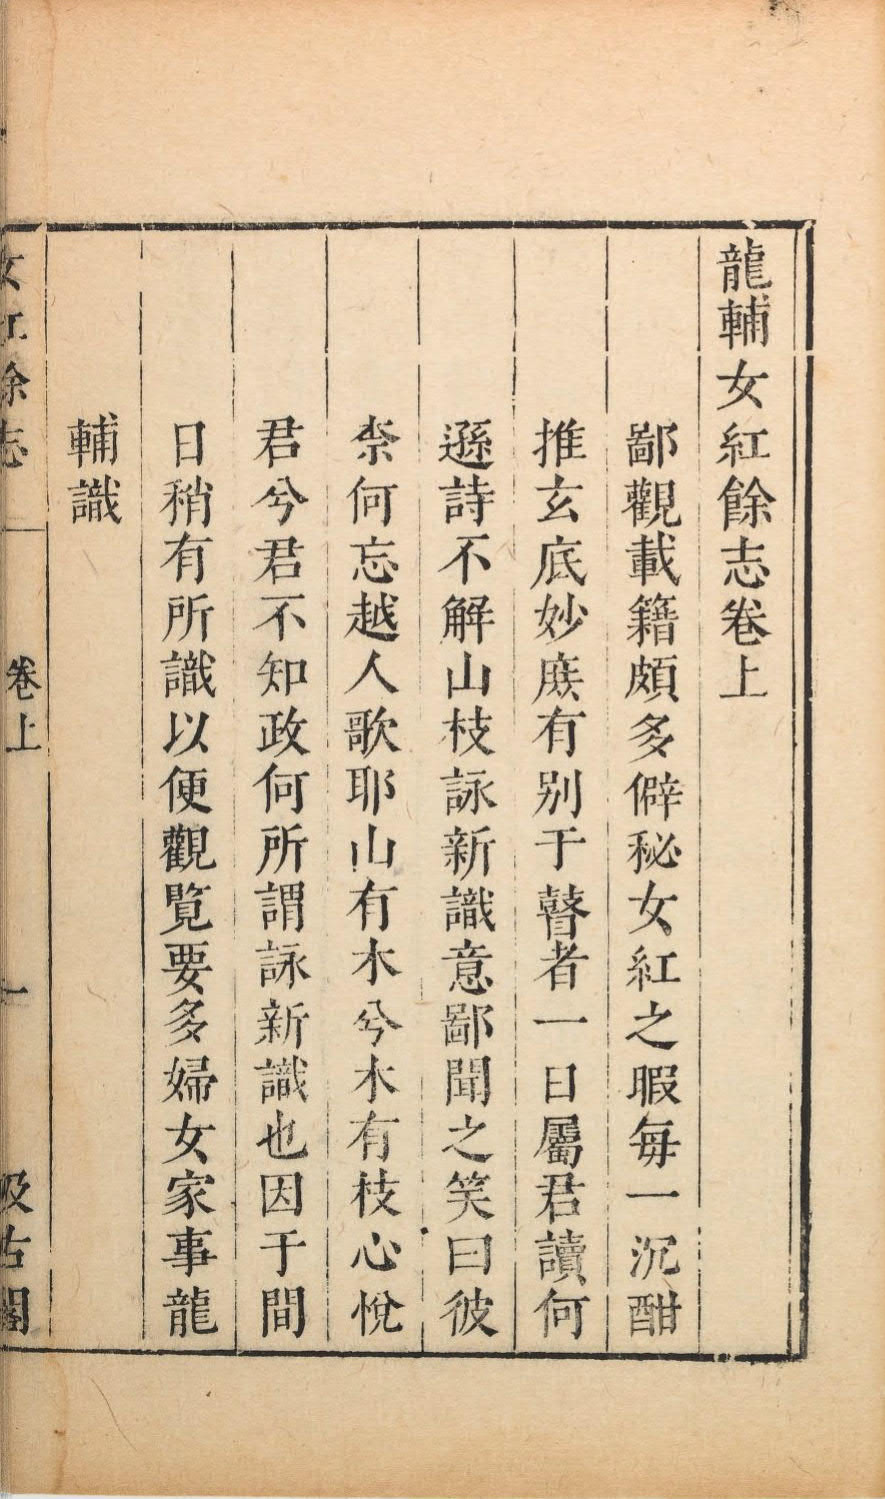 龍輔女紅餘志卷上
鄙觀載籍頗多僻秘女紅之暇每一沉酣
推玄底妙庶有别于瞽者一日屬君讀何
遜詩不解山枝詠新識意鄙聞之笑曰彼
柰何忘越人歌耶山有木兮木有枝心悅
君兮君不知政何所謂詠新識也因于間
日稍有所識以便觀覽要多婦女家事龍
輔識
女紅餘志
卷上
一
汲古閣